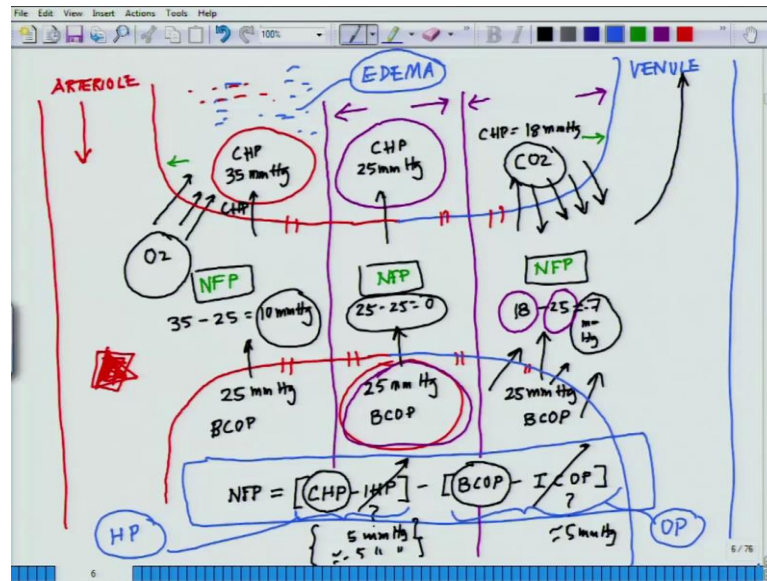 File Edit View Insert Actions Tools Help
100%
B I
ARTERIOLE
EDEMA
VENULE
CHP
35 mmHg
CHP
25 mmHg
CHP = 18 mmHg
CO2
CHP
O2
NFP
NFP
NFP
35 - 25 = 10 mmHg
25 - 25 = 0
18 - 25 = -7
mm
Hg
25 mm Hg
BCOP
25 mm Hg
BCOP
25 mm Hg
BCOP
NFP = [CHP - IHP] - [BCOP - ICOP]
? ?
HP
5 mm Hg
≃ 5 mmHg
OP
6 / 76
6